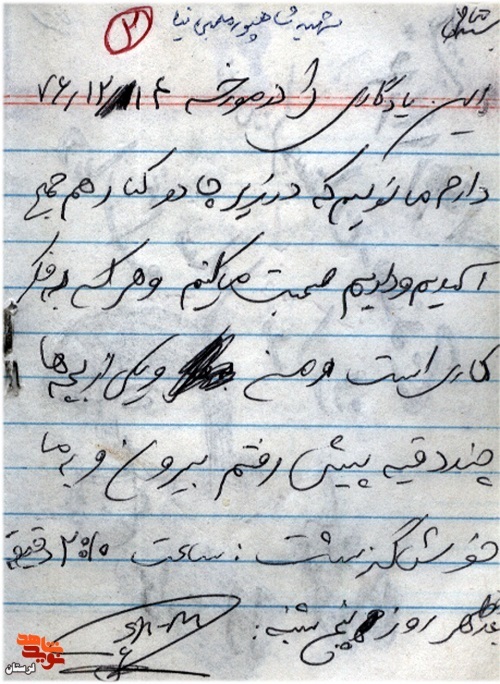 شهید شاهپور معین نیا ۳
این یادگاری را در مورخه ۷۶/۱۲/۱۴
دارم مانویسم که در زیر چادر کنار هم جمع
آمدیم و داریم صحبت ماکنیم و هر کس به فکر
کاری است و من و یکی از بچه ها
چند دقیه پیش رفتم بیرون و به ما
خوش گذشت : ساعت ۲:۱۰ دقیقه
روز پنج شنبه :
نوید شاهد
لرستان